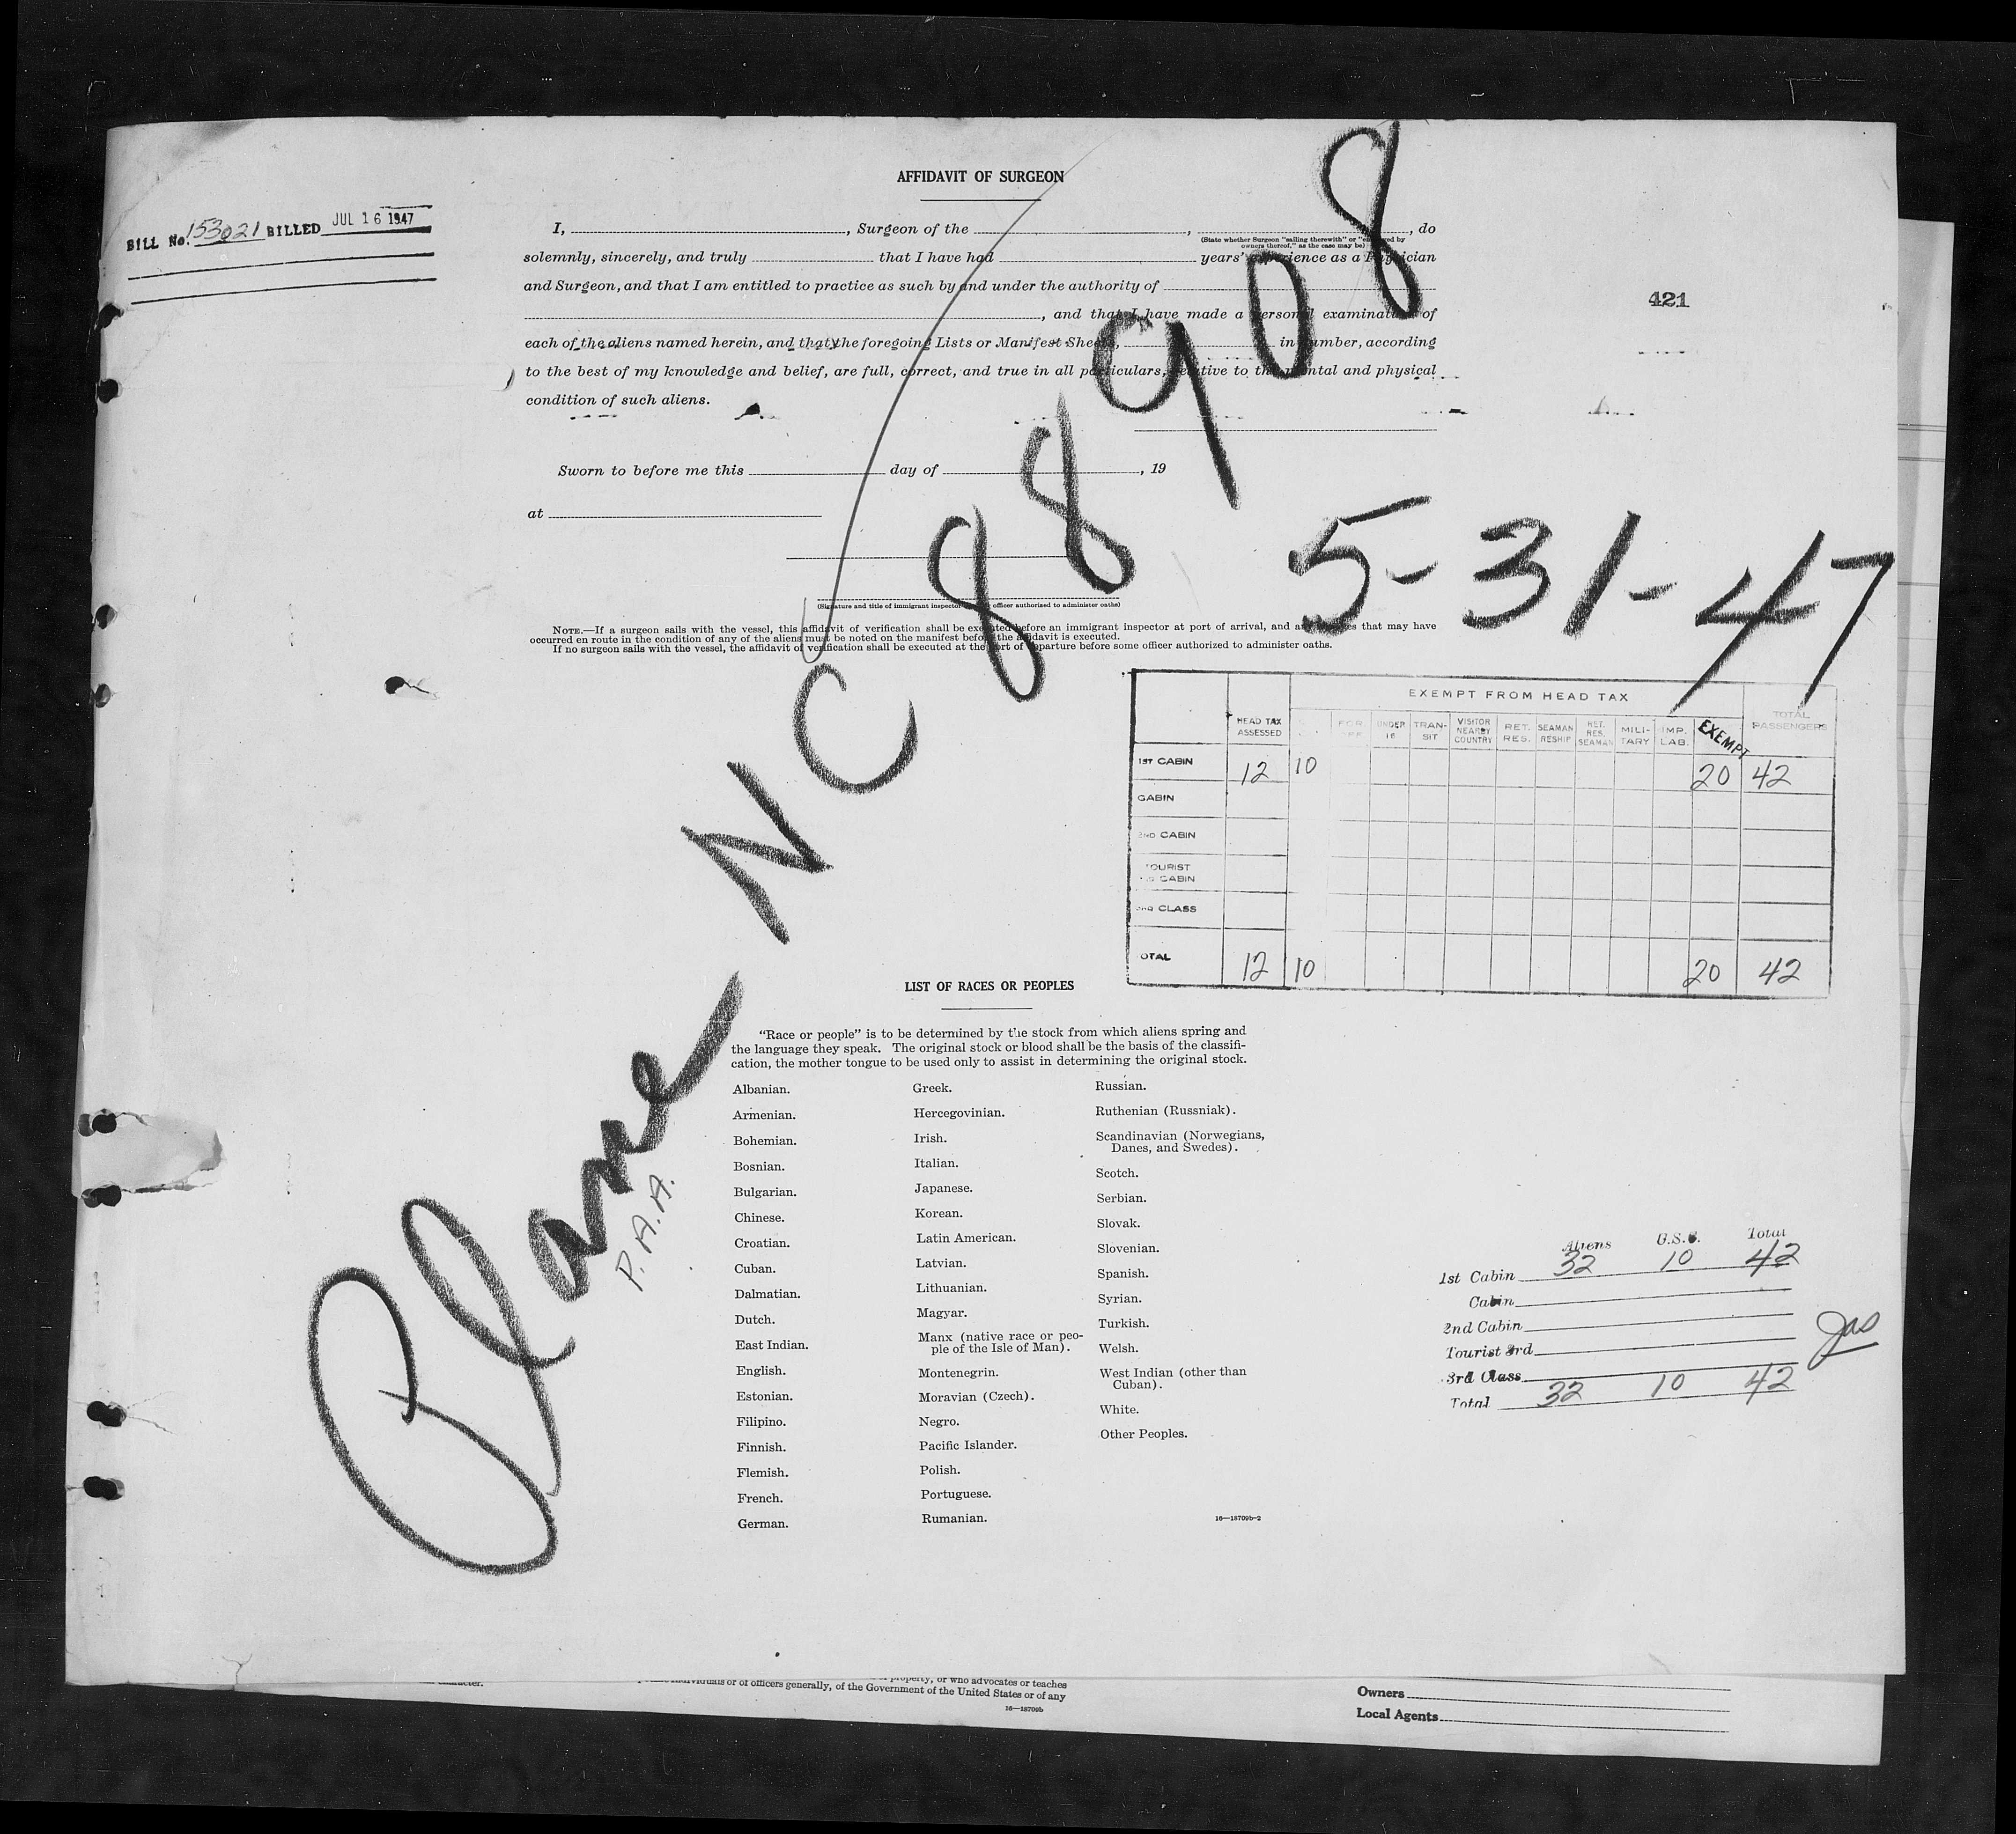 AFFIDAVIT OF SURGEON
BILL No. 153021 BILLED JUL 16 1947
I, , Surgeon of the , , do
(State whether Surgeon "sailing therewith" or "employed by
owners thereof," as the case may be)
solemnly, sincerely, and truly that I have had years' experience as a Physician
and Surgeon, and that I am entitled to practice as such by and under the authority of
, and that I have made a personal examination of
each of the aliens named herein, and that the foregoing Lists or Manifest Sheets, in number, according
to the best of my knowledge and belief, are full, correct, and true in all particulars, relative to the mental and physical
condition of such aliens.
421
Sworn to before me this day of , 19
at
(Signature and title of immigrant inspector officer authorized to administer oaths)
NOTE.—If a surgeon sails with the vessel, this affidavit of verification shall be executed before an immigrant inspector at port of arrival, and any changes that may have
occurred en route in the condition of any of the aliens must be noted on the manifest before the affidavit is executed.
If no surgeon sails with the vessel, the affidavit of verification shall be executed at the port of departure before some officer authorized to administer oaths.
Plane NC 88908
P.A.A.
5-31-47
EXEMPT FROM HEAD TAX
HEAD TAX ASSESSED FOR. UNDER 16 TRAN-SIT VISITOR NEARBY COUNTRY RET. RES. SEAMAN RESHIP RET. RES. SEAMAN MILI-TARY IMP. LAB. EXEMPT TOTAL PASSENGERS
1ST CABIN 12 10 20 42
CABIN
2ND CABIN
TOURIST
CABIN
3RD CLASS
OTAL 12 10 20 42
LIST OF RACES OR PEOPLES
"Race or people" is to be determined by the stock from which aliens spring and
the language they speak. The original stock or blood shall be the basis of the classifi-
cation, the mother tongue to be used only to assist in determining the original stock.
Albanian.
Armenian.
Bohemian.
Bosnian.
Bulgarian.
Chinese.
Croatian.
Cuban.
Dalmatian.
Dutch.
East Indian.
English.
Estonian.
Filipino.
Finnish.
Flemish.
French.
German.
Greek.
Hercegovinian.
Irish.
Italian.
Japanese.
Korean.
Latin American.
Latvian.
Lithuanian.
Magyar.
Manx (native race or peo-
ple of the Isle of Man).
Montenegrin.
Moravian (Czech).
Negro.
Pacific Islander.
Polish.
Portuguese.
Rumanian.
Russian.
Ruthenian (Russniak).
Scandinavian (Norwegians,
Danes, and Swedes).
Scotch.
Serbian.
Slovak.
Slovenian.
Spanish.
Syrian.
Turkish.
Welsh.
West Indian (other than
Cuban).
White.
Other Peoples.
16—18709b-2
Aliens U.S.C. Total
1st Cabin 32 10 42
Cabin
2nd Cabin
Tourist 3rd
3rd Class
Total 32 10 42
character.
property, or who advocates or teaches
individuals or of officers generally, of the Government of the United States or of any
16—18709b
Owners
Local Agents